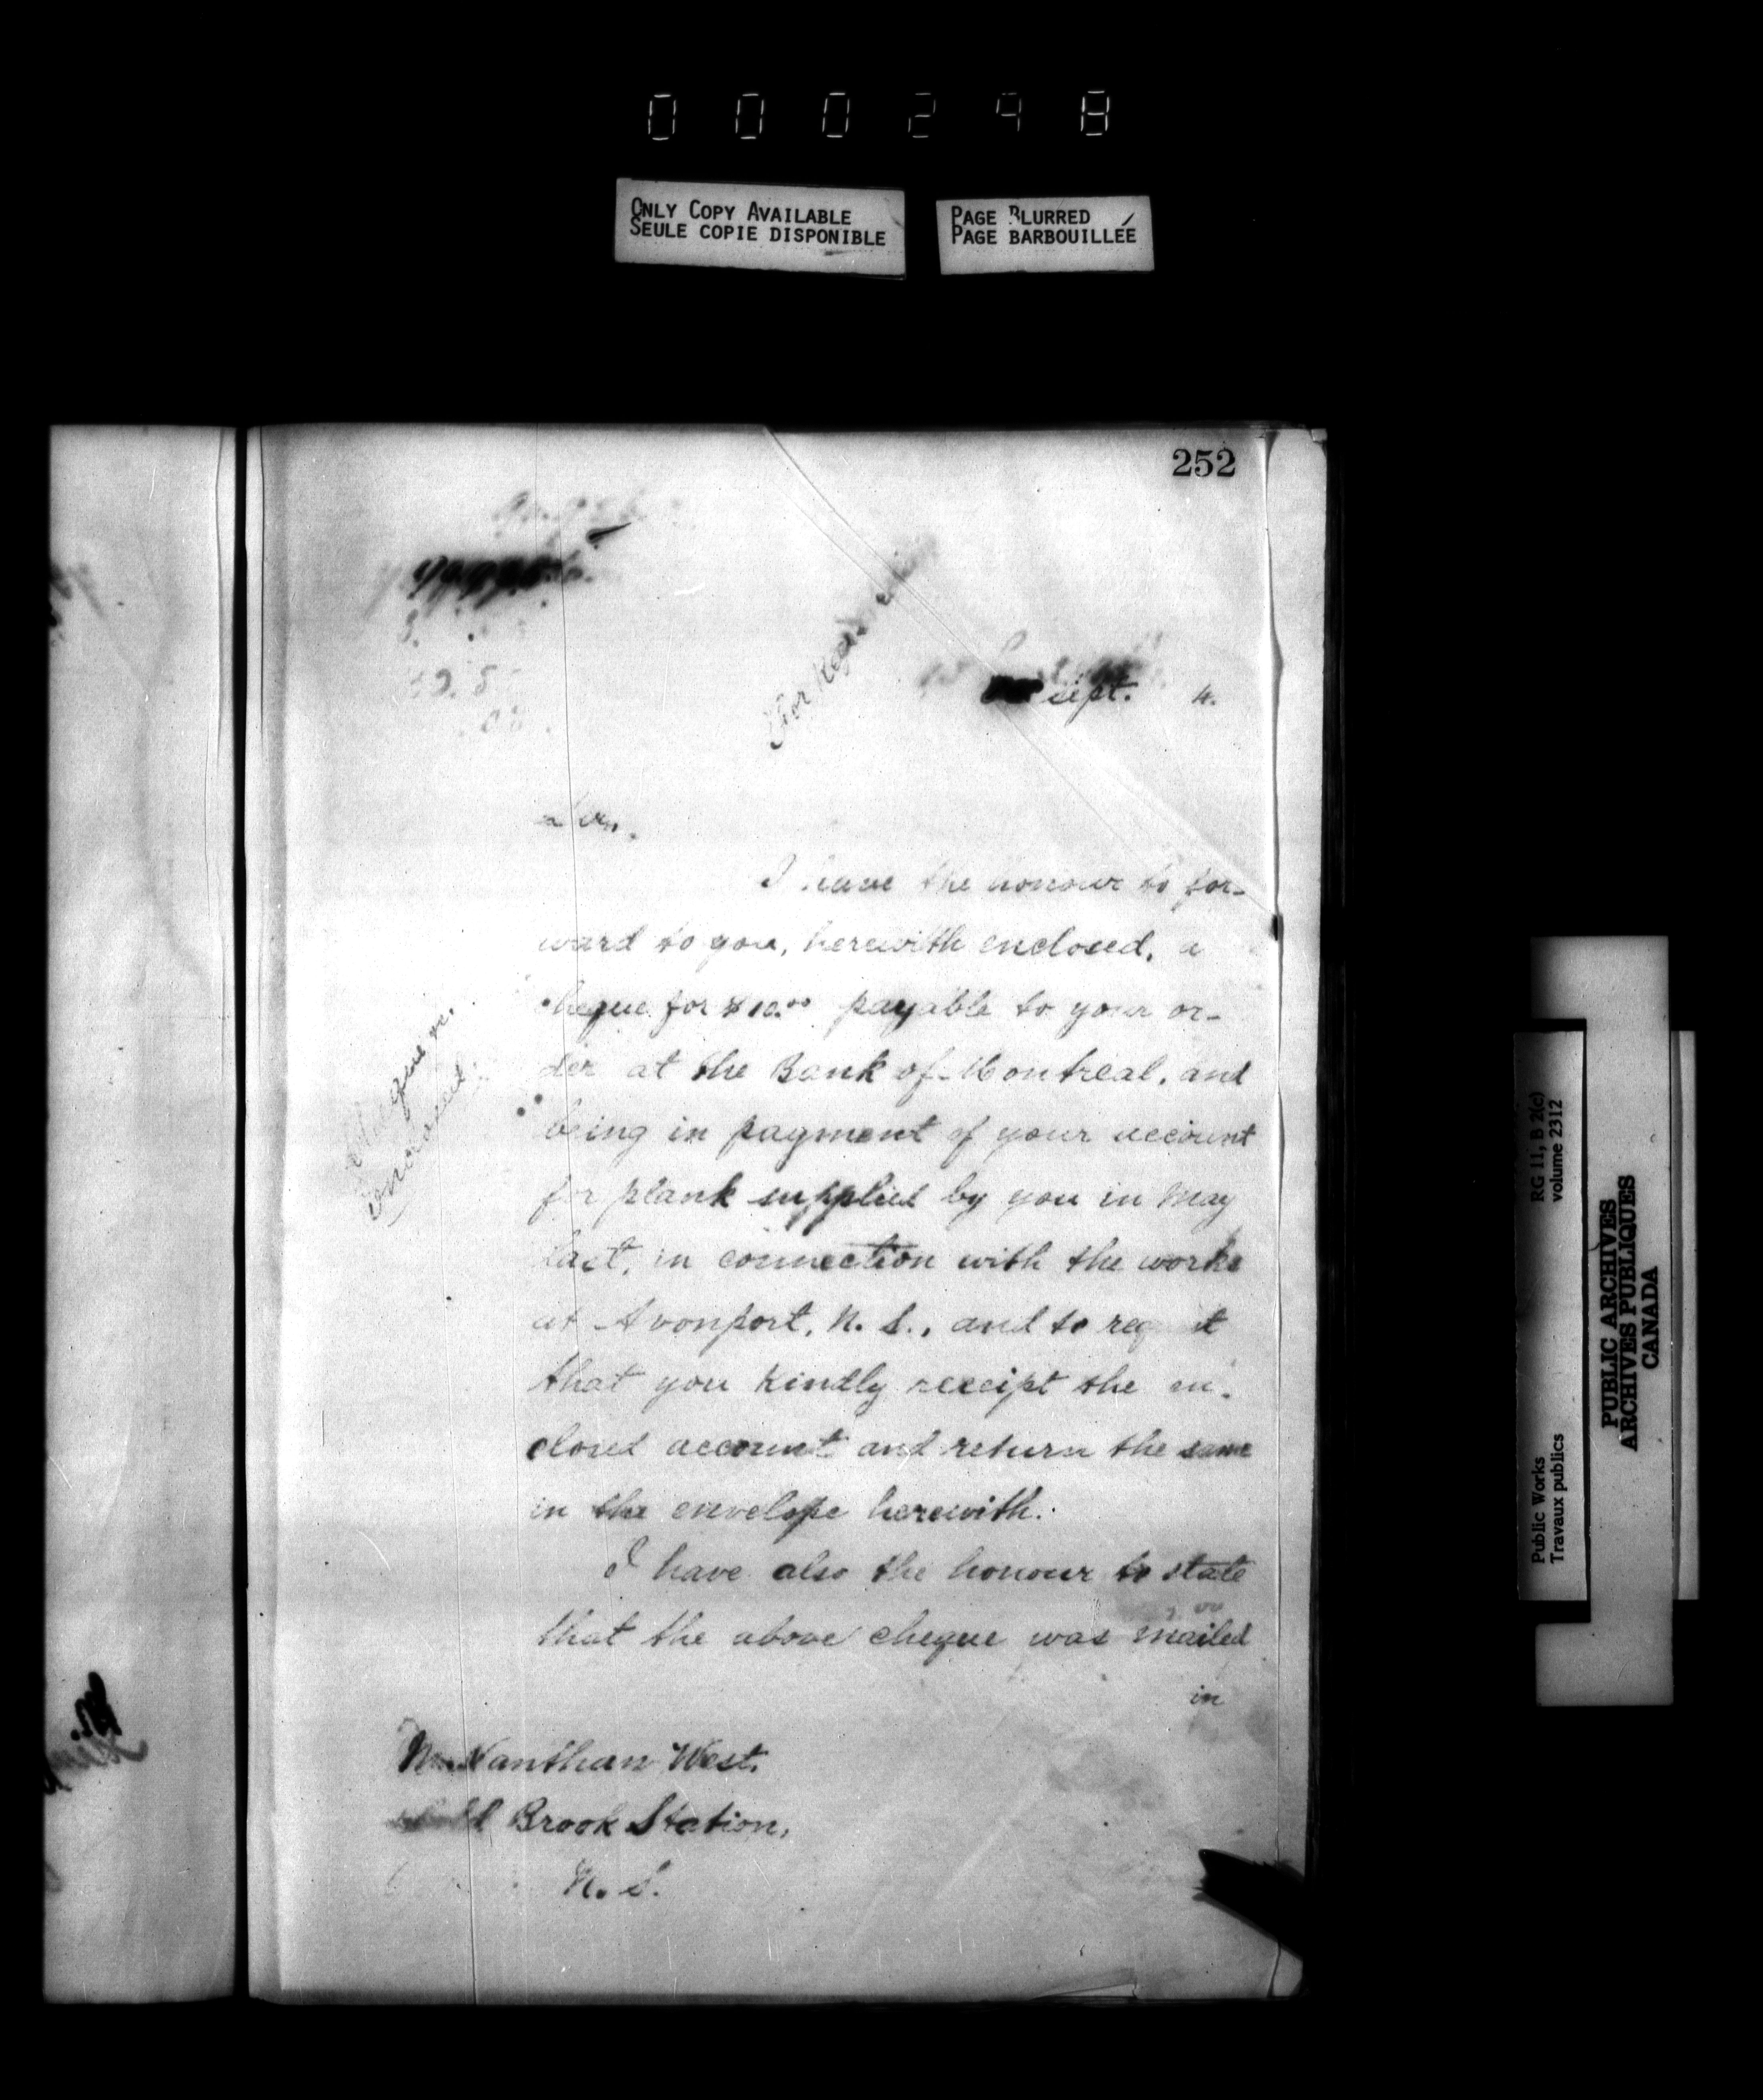 000248
ONLY COPY AVAILABLE
SEULE COPIE DISPONIBLE
PAGE BLURRED
PAGE BARBOUILLÉE
252
Sept. 4.
Sir,
I have the honour to for-
ward to you, herewith enclosed, a
cheque for $10.00 payable to your or-
der at the Bank of Montreal, and
being in payment of your account
for plank supplied by you in May
last, in connection with the works
at Avonport, N. S., and to request
that you kindly receipt the en-
closed account and return the same
in the envelope herewith.
I have also the honour to state
that the above cheque was mailed
in
Nanthan West.
Brook Station,
N. S.
Cheque re.
For
RG 11, B 2(c)
volume 2312
Public Works
Travaux publics
PUBLIC ARCHIVES
ARCHIVES PUBLIQUES
CANADA